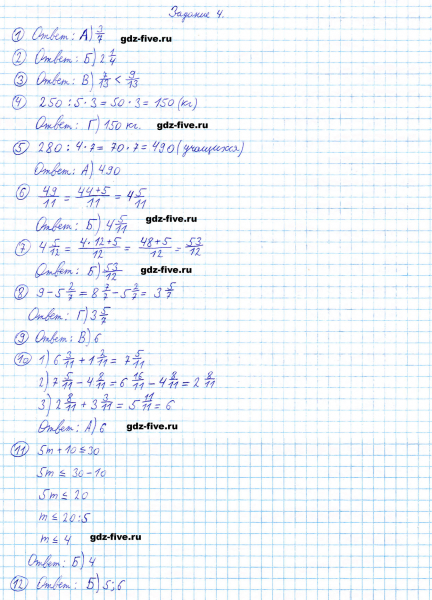 Задание 4.
1 Ответ: А) 3/7 gdz-five.ru
2 Ответ: Б) 2 1/4
3 Ответ: В) 7/13 < 9/13 gdz-five.ru
4 250 : 5 · 3 = 50 · 3 = 150 (кг)
Ответ: Г) 150 кг. gdz-five.ru
5 280 : 4 · 7 = 70 · 7 = 490 (учащихся)
Ответ: А) 490
6 49/11 = 44+5/11 = 4 5/11
Ответ: Б) 4 5/11 gdz-five.ru
7 4 5/12 = 4·12+5/12 = 48+5/12 = 53/12
Ответ: Б) 53/12 gdz-five.ru
8 9 - 5 2/7 = 8 7/7 - 5 2/7 = 3 5/7
Ответ: Г) 3 5/7
9 Ответ: В) 6 gdz-five.ru
10 1) 6 /11 + 1 /11 = 7 5/11
2) 7 5/11 - 4 8/11 = 6 16/11 - 4 8/11 = 2 8/11
3) 2 8/11 + 3 3/11 = 5 11/11 = 6
Ответ: А) 6 gdz-five.ru
11 5m + 10 ≤ 30
5m ≤ 30 - 10
5m ≤ 20
m ≤ 20 : 5
m ≤ 4 gdz-five.ru
Ответ: Б) 4
12 Ответ: Б) 5; 6